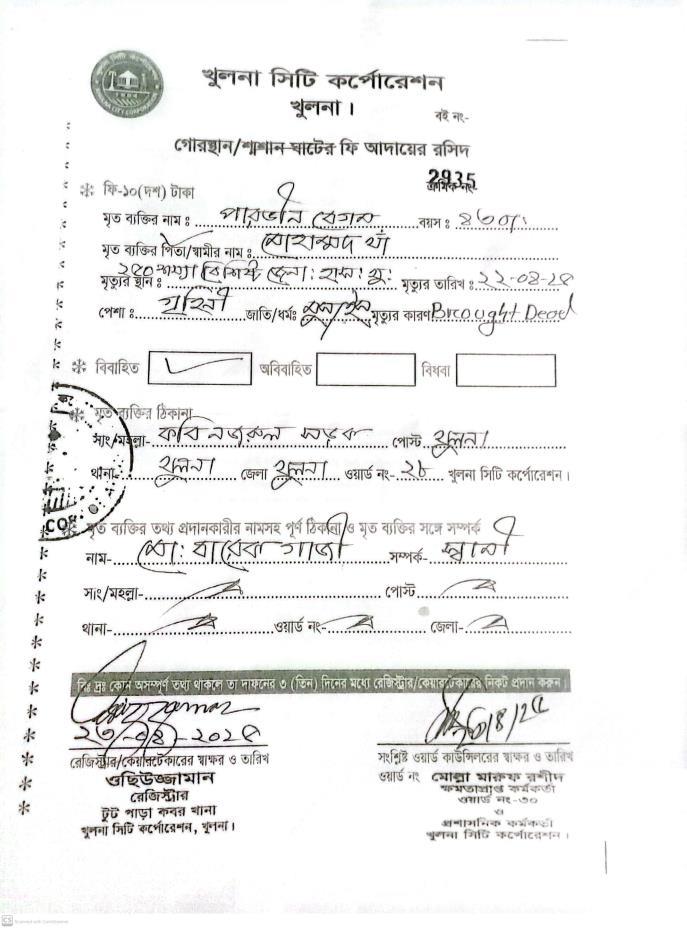 খুলনা সিটি কর্পোরেশন
খুলনা।
বই নং-
গোরস্থান/শ্মশান ঘাটের ফি আদায়ের রসিদ
2935
ক্রমিক নং
ফি-১০(দশ) টাকা
মৃত ব্যক্তির নাম : পারভীন বেগম বয়স :
মৃত ব্যক্তির পিতা/স্বামীর নাম : মোহাম্মদ খাঁ
মৃত্যুর স্থান : ২৫০ শয্যা বিশিষ্ট জেনা: হাস: খু: মৃত্যুর তারিখ : ২২-০৪-২৫
পেশা : গৃহিনী জাতি/ধর্মঃ মৃত্যুর কারণ Brought Dead
বিবাহিত ✓ অবিবাহিত বিধবা
মৃত ব্যক্তির ঠিকানা
সাং/মহল্লা- কবি নজরুল সড়ক পোস্ট খুলনা
থানা- খুলনা জেলা খুলনা ওয়ার্ড নং- ২৮ খুলনা সিটি কর্পোরেশন।
মৃত ব্যক্তির তথ্য প্রদানকারীর নামসহ পূর্ণ ঠিকানা ও মৃত ব্যক্তির সঙ্গে সম্পর্ক
নাম- মো: বারেক গাজী সম্পর্ক- স্বামী
সাং/মহল্লা- পোস্ট
থানা- ওয়ার্ড নং- জেলা-
বিঃ দ্রঃ কোন অসম্পূর্ণ তথ্য থাকলে তা দাফনের ৩ (তিন) দিনের মধ্যে রেজিস্ট্রার/কেয়ারটেকারের নিকট প্রদান করুন।
২৩-০৪-২০২৫
রেজিস্ট্রার/কেয়ারটেকারের স্বাক্ষর ও তারিখ
ওছিউজ্জামান
রেজিস্ট্রার
টুট পাড়া কবর খানা
খুলনা সিটি কর্পোরেশন, খুলনা।
সংশ্লিষ্ট ওয়ার্ড কাউন্সিলরের স্বাক্ষর ও তারিখ
ওয়ার্ড নং মোল্লা মারুফ রশীদ
ক্ষমতাপ্রাপ্ত কর্মকর্তা
ওয়ার্ড নং-৩০
ও
প্রশাসনিক কর্মকর্তা
খুলনা সিটি কর্পোরেশন।
CS Scanned with CamScanner